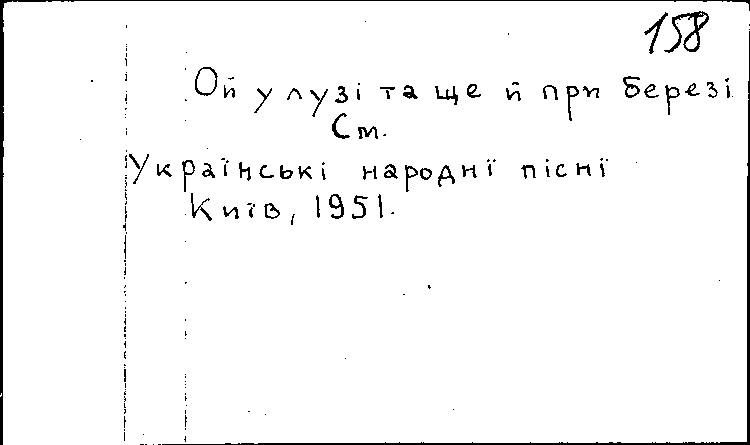 158
Ой у лузі та ще й при березі
См.
Українські народнї пісні
Київ, 1951.